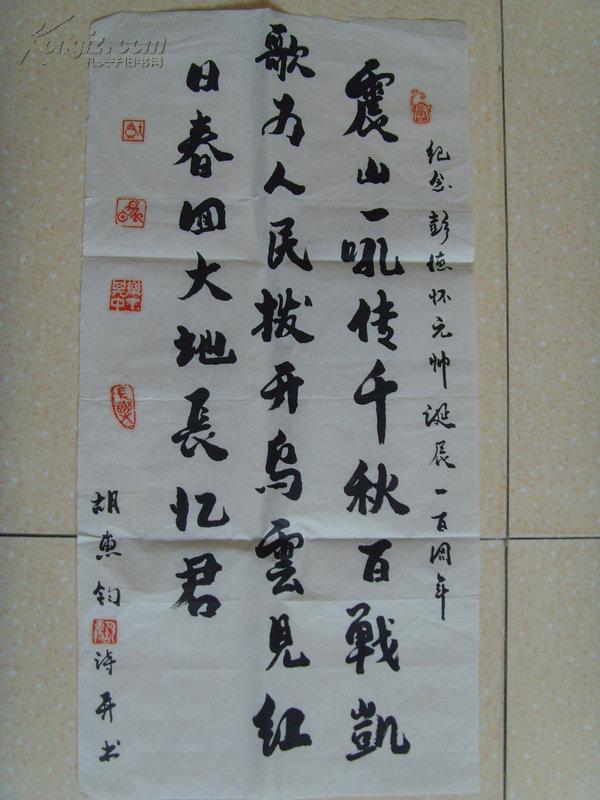 纪念彭德怀元帅诞辰一百周年
震山一吼传千秋百戦凱
歌为人民拨开乌雲見红
日春回大地長忆君
胡惠钧诗并书
长樂
Kongfz.com
孔夫子旧书网